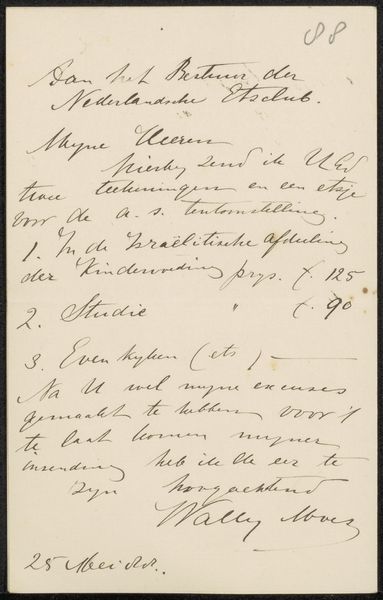 88
Aan het Bestuur der
Nederlandsche Etsclub.
Mijne Heeren
Hierbij zend ik UEd
twee teekeningen en een etsje
voor de a.s. tentoonstelling.
1. In de Israëlitische afdeeling
der Kindervoeding prys. f. 125
2. Studie " f. 90
3. Even kyken (ets) —
Na U wel mijne excuses
gemaakt te hebben voor 't
te laat komen mijner
inzending heb ik de eer te
zijn hoogachtend
Wally Moes
25 Mei 88.